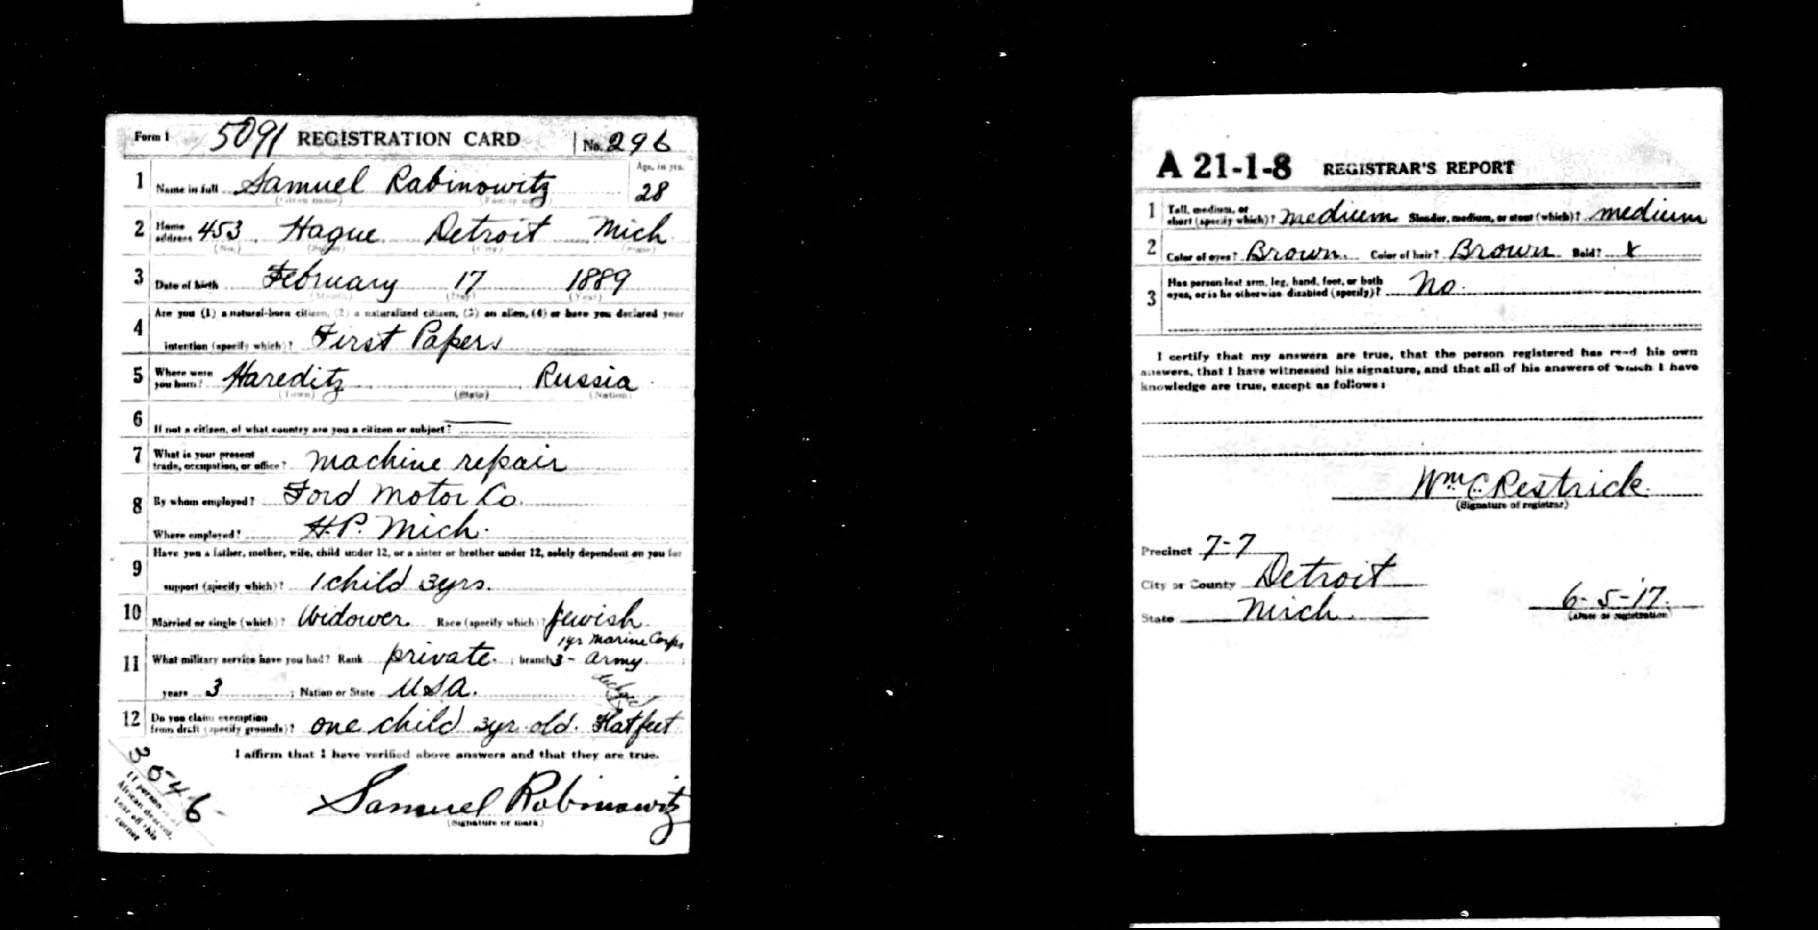 Form 1 5091 REGISTRATION CARD No. 296
1 Name in full Samuel Rabinowitz Age, in yrs. 28
(Given name) (Family name)
2 Home address 453 Hague Detroit Mich
(No.) (Street) (City) (State)
3 Date of birth February 17 1889
(Month) (Day) (Year)
4 Are you (1) a natural-born citizen, (2) a naturalized citizen, (3) an alien, (4) or have you declared your
intention (specify which)? First Papers
5 Where were you born? Hareditz Russia
(Town) (State) (Nation)
6 If not a citizen, of what country are you a citizen or subject?
7 What is your present trade, occupation, or office? machine repair
8 By whom employed? Ford Motor Co.
Where employed? H.P. Mich.
9 Have you a father, mother, wife, child under 12, or a sister or brother under 12, solely dependent on you for
support (specify which)? 1 child 3 yrs.
10 Married or single (which)? Widower Race (specify which)? Jewish
1 yr Marine Corps
11 What military service have you had? Rank private ; branch 3 - army ;
years 3 ; Nation or State USA.
12 Do you claim exemption from draft (specify grounds)? one child 3 yr old. Flatfeet
I affirm that I have verified above answers and that they are true.
Samuel Rabinowitz
(Signature or mark)
3546
If person is of
African descent,
tear off this
corner
A 21-1-8 REGISTRAR'S REPORT
1 Tall, medium, or short (specify which)? medium Slender, medium, or stout (which)? medium
2 Color of eyes? Brown Color of hair? Brown Bald? x
3 Has person lost arm, leg, hand, foot, or both eyes, or is he otherwise disabled (specify)? No.
I certify that my answers are true, that the person registered has read his own
answers, that I have witnessed his signature, and that all of his answers of which I have
knowledge are true, except as follows:
Wm C Restrick
(Signature of registrar)
Precinct 7-7
City or County Detroit
State Mich. 6-5-17.
(Date of registration)